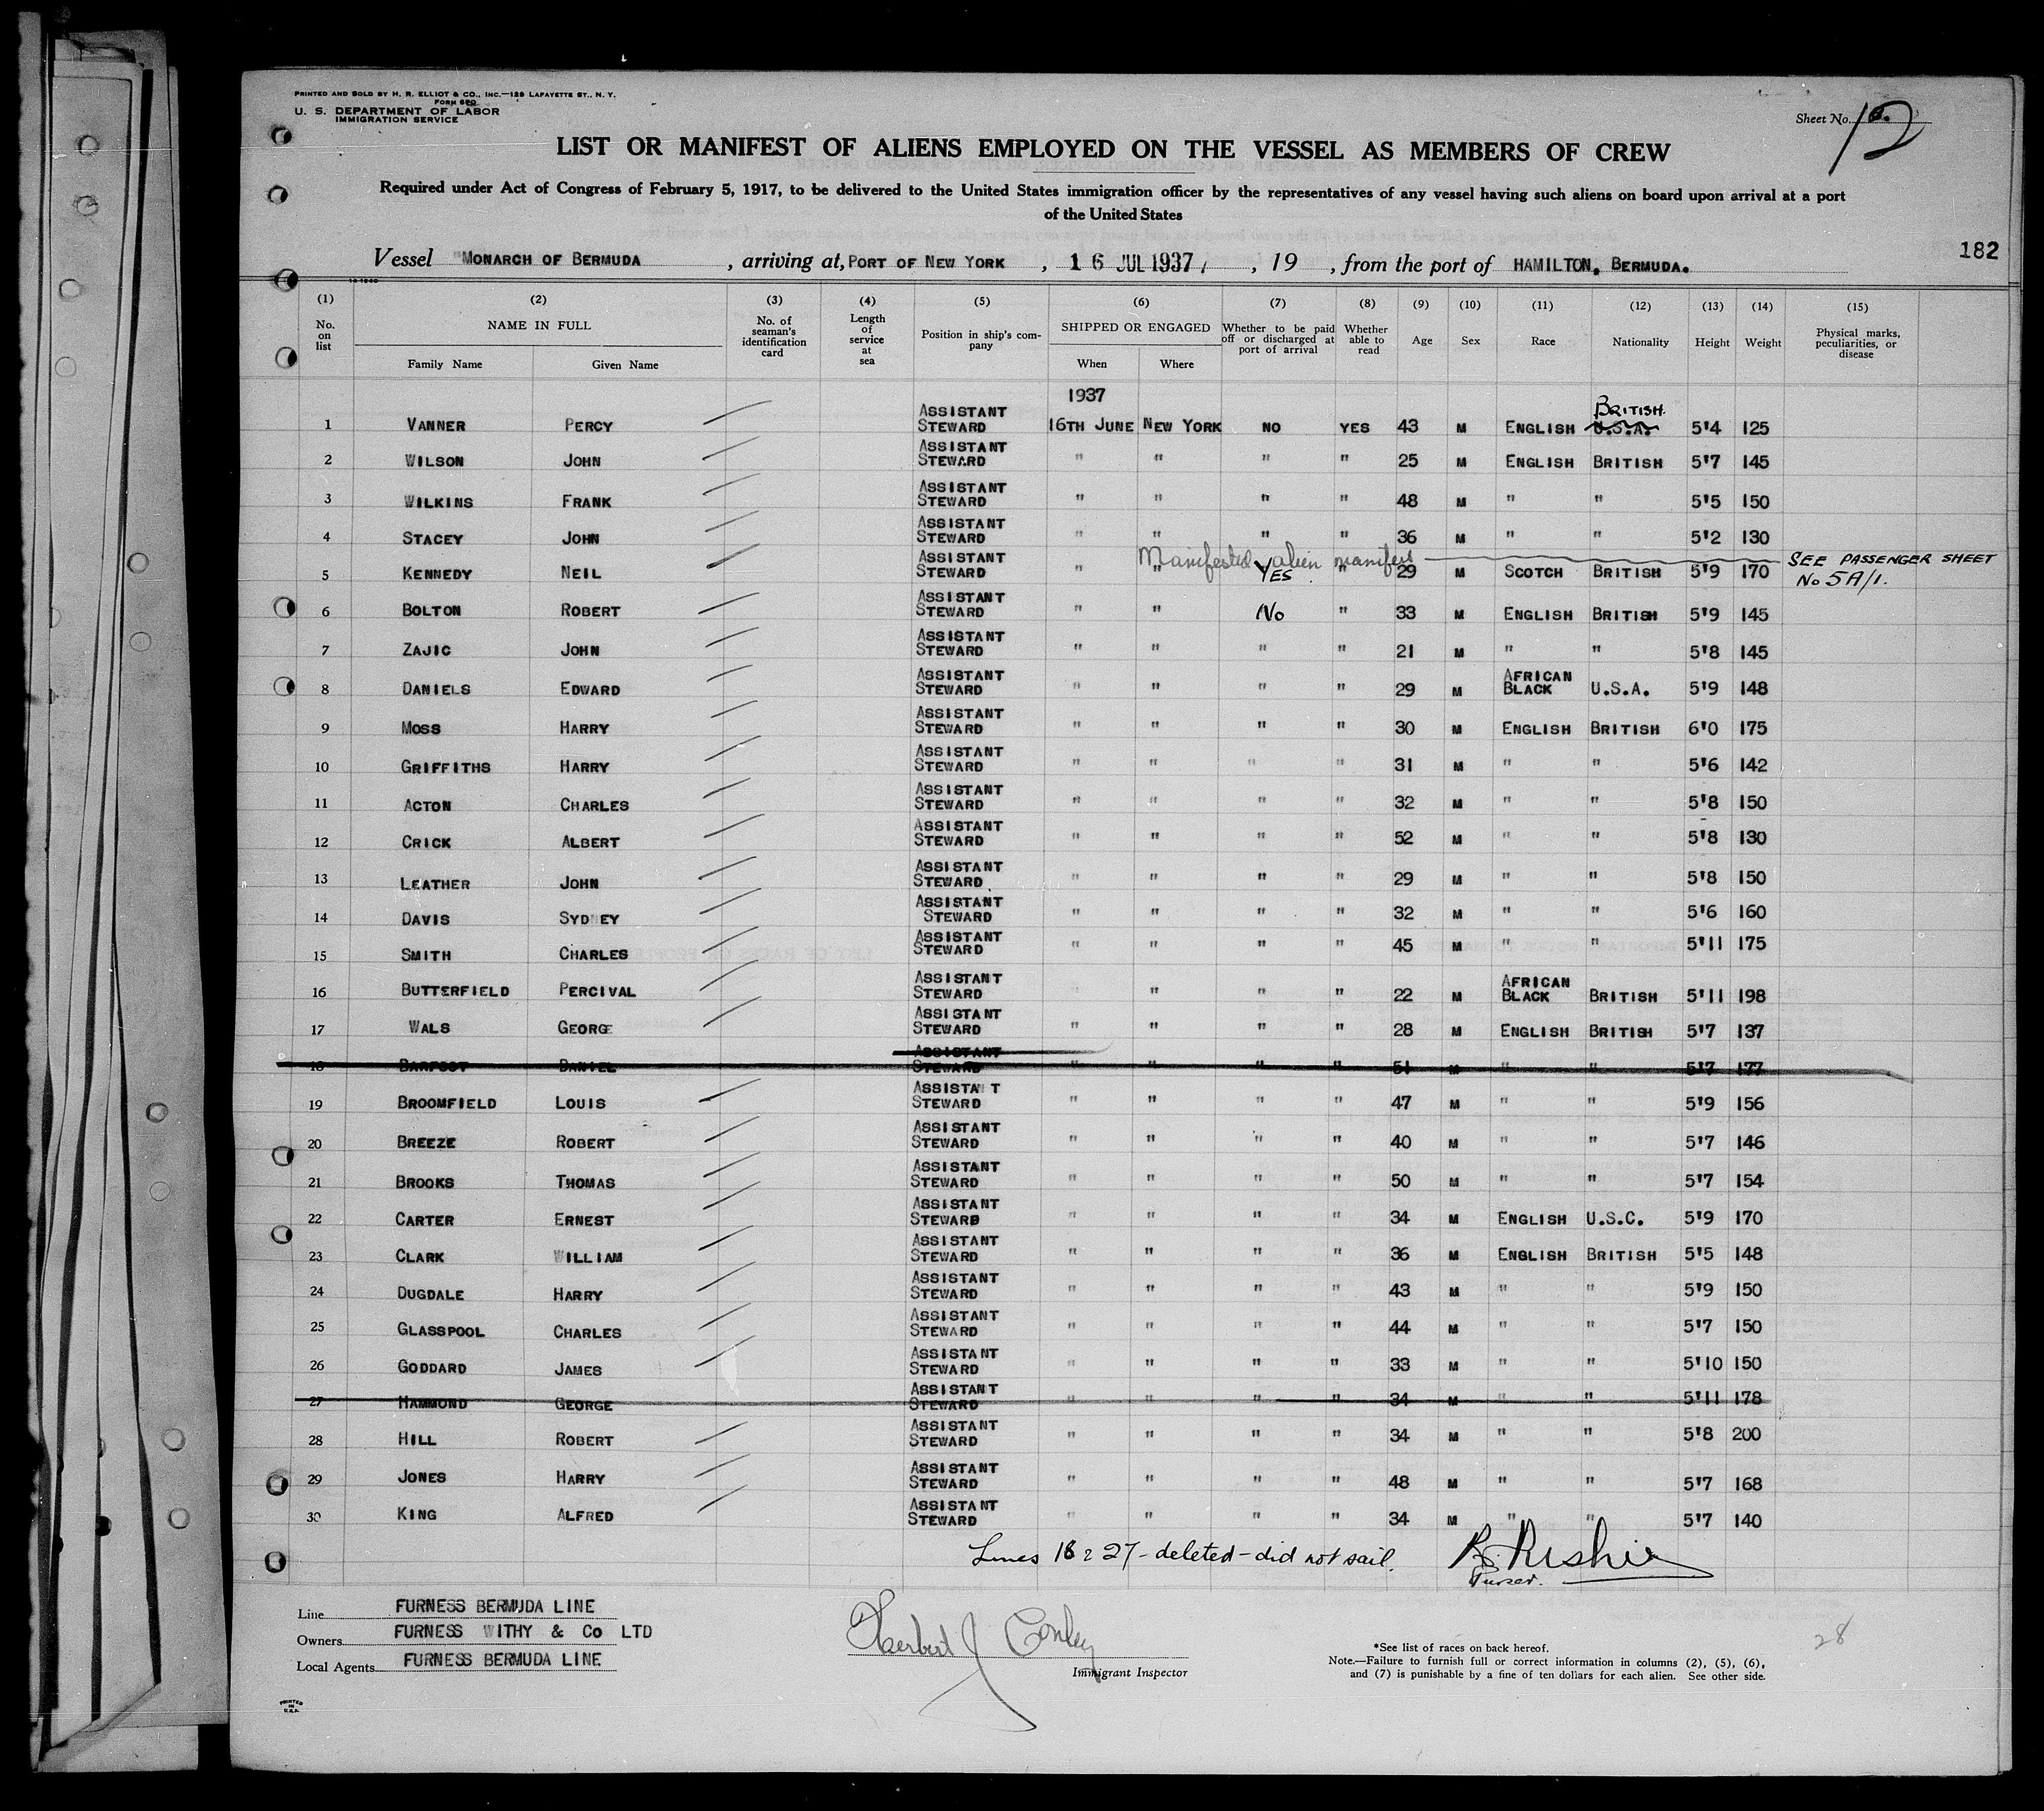 PRINTED AND SOLD BY H. R. ELLIOT & CO., INC.—129 LAFAYETTE ST., N. Y.
FORM 680
U. S. DEPARTMENT OF LABOR
IMMIGRATION SERVICE
Sheet No. 12
LIST OR MANIFEST OF ALIENS EMPLOYED ON THE VESSEL AS MEMBERS OF CREW
Required under Act of Congress of February 5, 1917, to be delivered to the United States immigration officer by the representatives of any vessel having such aliens on board upon arrival at a port
of the United States
182
Vessel "MONARCH OF BERMUDA , arriving at, PORT OF NEW YORK , 16 JUL 1937 , 19 , from the port of HAMILTON, BERMUDA.
(1) No. on list (2) NAME IN FULL Family Name Given Name (3) No. of seaman's identification card (4) Length of service at sea (5) Position in ship's company (6) SHIPPED OR ENGAGED When Where (7) Whether to be paid off or discharged at port of arrival (8) Whether able to read (9) Age (10) Sex (11) Race (12) Nationality (13) Height (14) Weight (15) Physical marks, peculiarities, or disease
1937
1 VANNER PERCY ASSISTANT STEWARD 16TH JUNE NEW YORK NO YES 43 M ENGLISH U.S.A. BRITISH. 5'4 125
2 WILSON JOHN ASSISTANT STEWARD " " " " 25 M ENGLISH BRITISH 5'7 145
3 WILKINS FRANK ASSISTANT STEWARD " " " " 48 M " " 5'5 150
4 STACEY JOHN ASSISTANT STEWARD " " " " 36 M " " 5'2 130
Manifested alien manifest
5 KENNEDY NEIL ASSISTANT STEWARD " " YES " 29 M SCOTCH BRITISH 5'9 170 SEE PASSENGER SHEET No 5A/1.
6 BOLTON ROBERT ASSISTANT STEWARD " " No " 33 M ENGLISH BRITISH 5'9 145
7 ZAJIC JOHN ASSISTANT STEWARD " " " " 21 M " " 5'8 145
8 DANIELS EDWARD ASSISTANT STEWARD " " " " 29 M AFRICAN BLACK U.S.A. 5'9 148
9 MOSS HARRY ASSISTANT STEWARD " " " " 30 M ENGLISH BRITISH 6'0 175
10 GRIFFITHS HARRY ASSISTANT STEWARD " " " " 31 M " " 5'6 142
11 ACTON CHARLES ASSISTANT STEWARD " " " " 32 M " " 5'8 150
12 CRICK ALBERT ASSISTANT STEWARD " " " " 52 M " " 5'8 130
13 LEATHER JOHN ASSISTANT STEWARD " " " " 29 M " " 5'8 150
14 DAVIS SYDNEY ASSISTANT STEWARD " " " " 32 M " " 5'6 160
15 SMITH CHARLES ASSISTANT STEWARD " " " " 45 M " " 5'11 175
16 BUTTERFIELD PERCIVAL ASSISTANT STEWARD " " " 22 M AFRICAN BLACK BRITISH 5'11 198
17 WALS GEORGE ASSISTANT STEWARD " " " " 28 M ENGLISH BRITISH 5'7 137
18 BARFOOT DANIEL ASSISTANT STEWARD " " " " 51 M " " 5'7 177
19 BROOMFIELD LOUIS ASSISTA T STEWARD " " " " 47 M " " 5'9 156
20 BREEZE ROBERT ASSISTANT STEWARD " " " " 40 M " " 5'7 146
21 BROOKS THOMAS ASSISTANT STEWARD " " " " 50 M " " 5'7 154
22 CARTER ERNEST ASSISTANT STEWARD " " " " 34 M ENGLISH U.S.C. 5'9 170
23 CLARK WILLIAM ASSISTANT STEWARD " " " " 36 M ENGLISH BRITISH 5'5 148
24 DUGDALE HARRY ASSISTANT STEWARD " " " " 43 M " " 5'9 150
25 GLASSPOOL CHARLES ASSISTANT STEWARD " " " " 44 M " " 5'7 150
26 GODDARD JAMES ASSISTANT STEWARD " " " " 33 M " " 5'10 150
27 HAMMOND GEORGE ASSISTANT STEWARD " " " " 34 M " " 5'11 178
28 HILL ROBERT ASSISTANT STEWARD " " " " 34 M " " 5'8 200
29 JONES HARRY ASSISTANT STEWARD " " " " 48 M " " 5'7 168
30 KING ALFRED ASSISTANT STEWARD " " " " 34 M " " 5'7 140
Lines 18 & 27 - deleted - did not sail.
Purser.
Line FURNESS BERMUDA LINE
Owners FURNESS WITHY & Co LTD
Local Agents FURNESS BERMUDA LINE
Herbert J Conley
Immigrant Inspector
*See list of races on back hereof.
Note.—Failure to furnish full or correct information in columns (2), (5), (6),
and (7) is punishable by a fine of ten dollars for each alien. See other side.
28
PRINTED IN U.S.A.